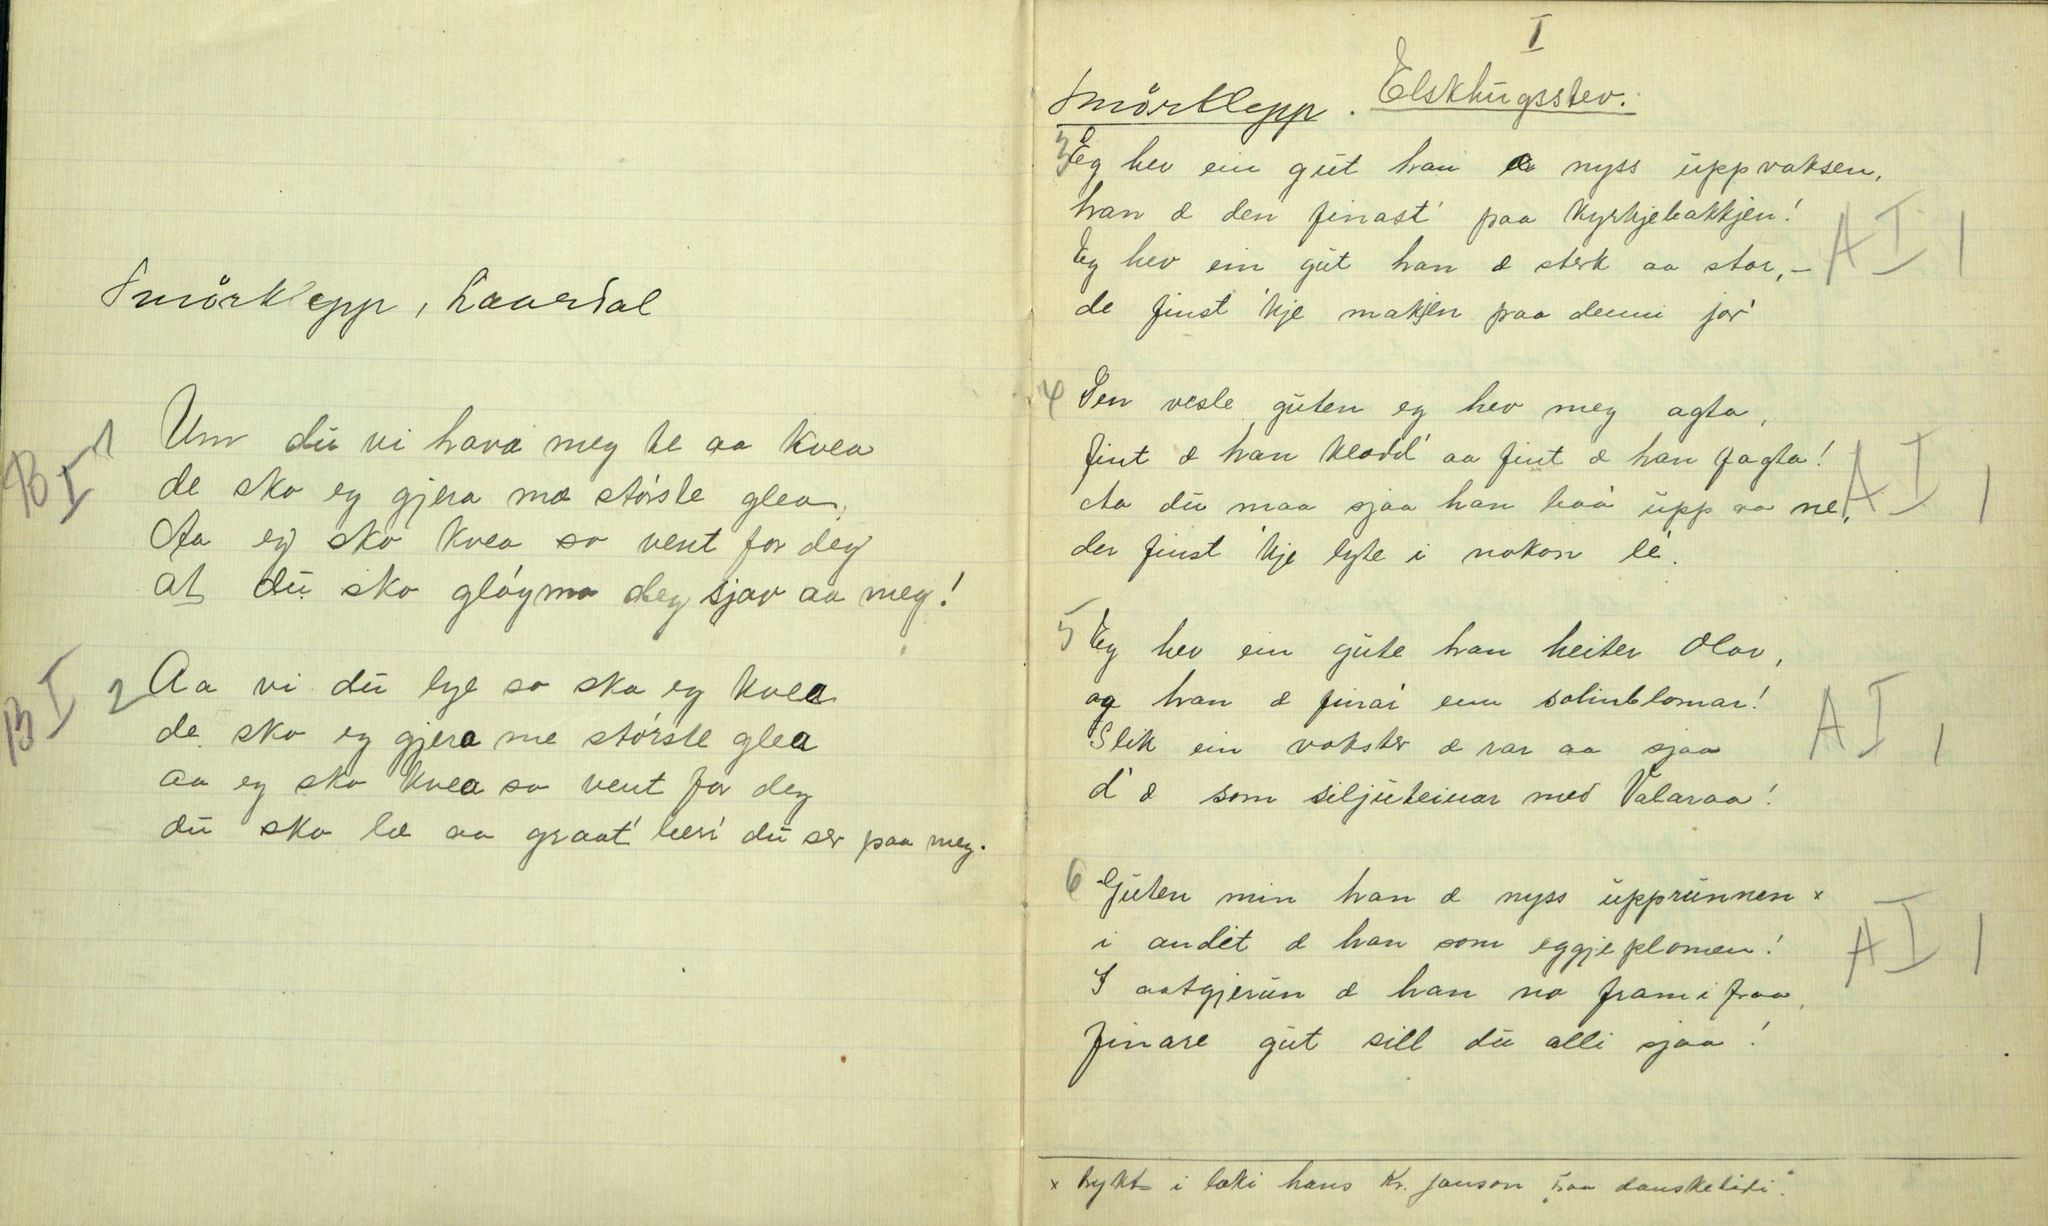 Smörklepp, Laardal
BI 1 Um du vi hava meg te aa kvea
de ska eg gjera mæ störste glea,
Aa eg ska kvea so vent for deg
at du ska glöyma deg sjav aa meg!
BI 2 Aa vi du lye so ska eg kvea
de ska eg gjera me störste glea
aa eg ska kvea so vent for deg
du ska læ aa graat' bæri du ser paa meg.
I
Smörklepp. Elskhugsstev.
3 Eg hev ein gut han æ nyss uppvaksen,
han æ den finast' paa kyrkjebakkjen!
Eg hev ein gut han æ sterk aa stor, – AI 1
de finst 'kje makjen paa denni jor'
4 Den vesle guten eg hev meg agta,
fint æ han klædd' aa fint æ han fagta! AI 1
Aa du maa sjaa han baa' upp aa ne,
der finst 'kje lyte i nokon le'.
5 Eg hev ein gute han heiter Olav,
og han æ finar' enn solinblomar!
Slik ein vokster æ rar aa sjaa AI 1
d' æ som siljuteinar med Valaraa!
6 Guten min han æ nyss upprunnen x
i andlit æ han som eggjeplomen! AI 1
I aatgjerun æ han no framifraa,
finare gut sill du alli sjaa!
x trykt i boki hans Kr. Janson „Fraa dansketidi".